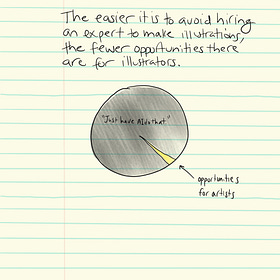 The easier it is to avoid hiring
an expert to make illustrations,
the fewer opportunities there
are for illustrators.
"Just have AI do that."
opportunities
for artists